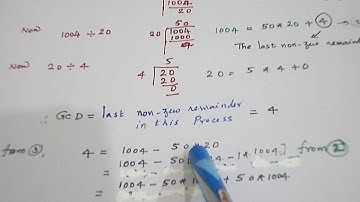 1004
20
50
Now 1004 ÷ 20 20 1004 1004 = 50 * 20 + 4
1000
The last non-zero remainder
5
Now 20 ÷ 4 4 20 20 = 5 * 4 + 0
20
0
∴ GCD = last non-zero remainder = 4
in this Process
from ③, 4 = 1004 - 50 * 20
= 1004 - 50 - 1 * 1004] from ②
= 1004 - 50 * + 50 * 1004